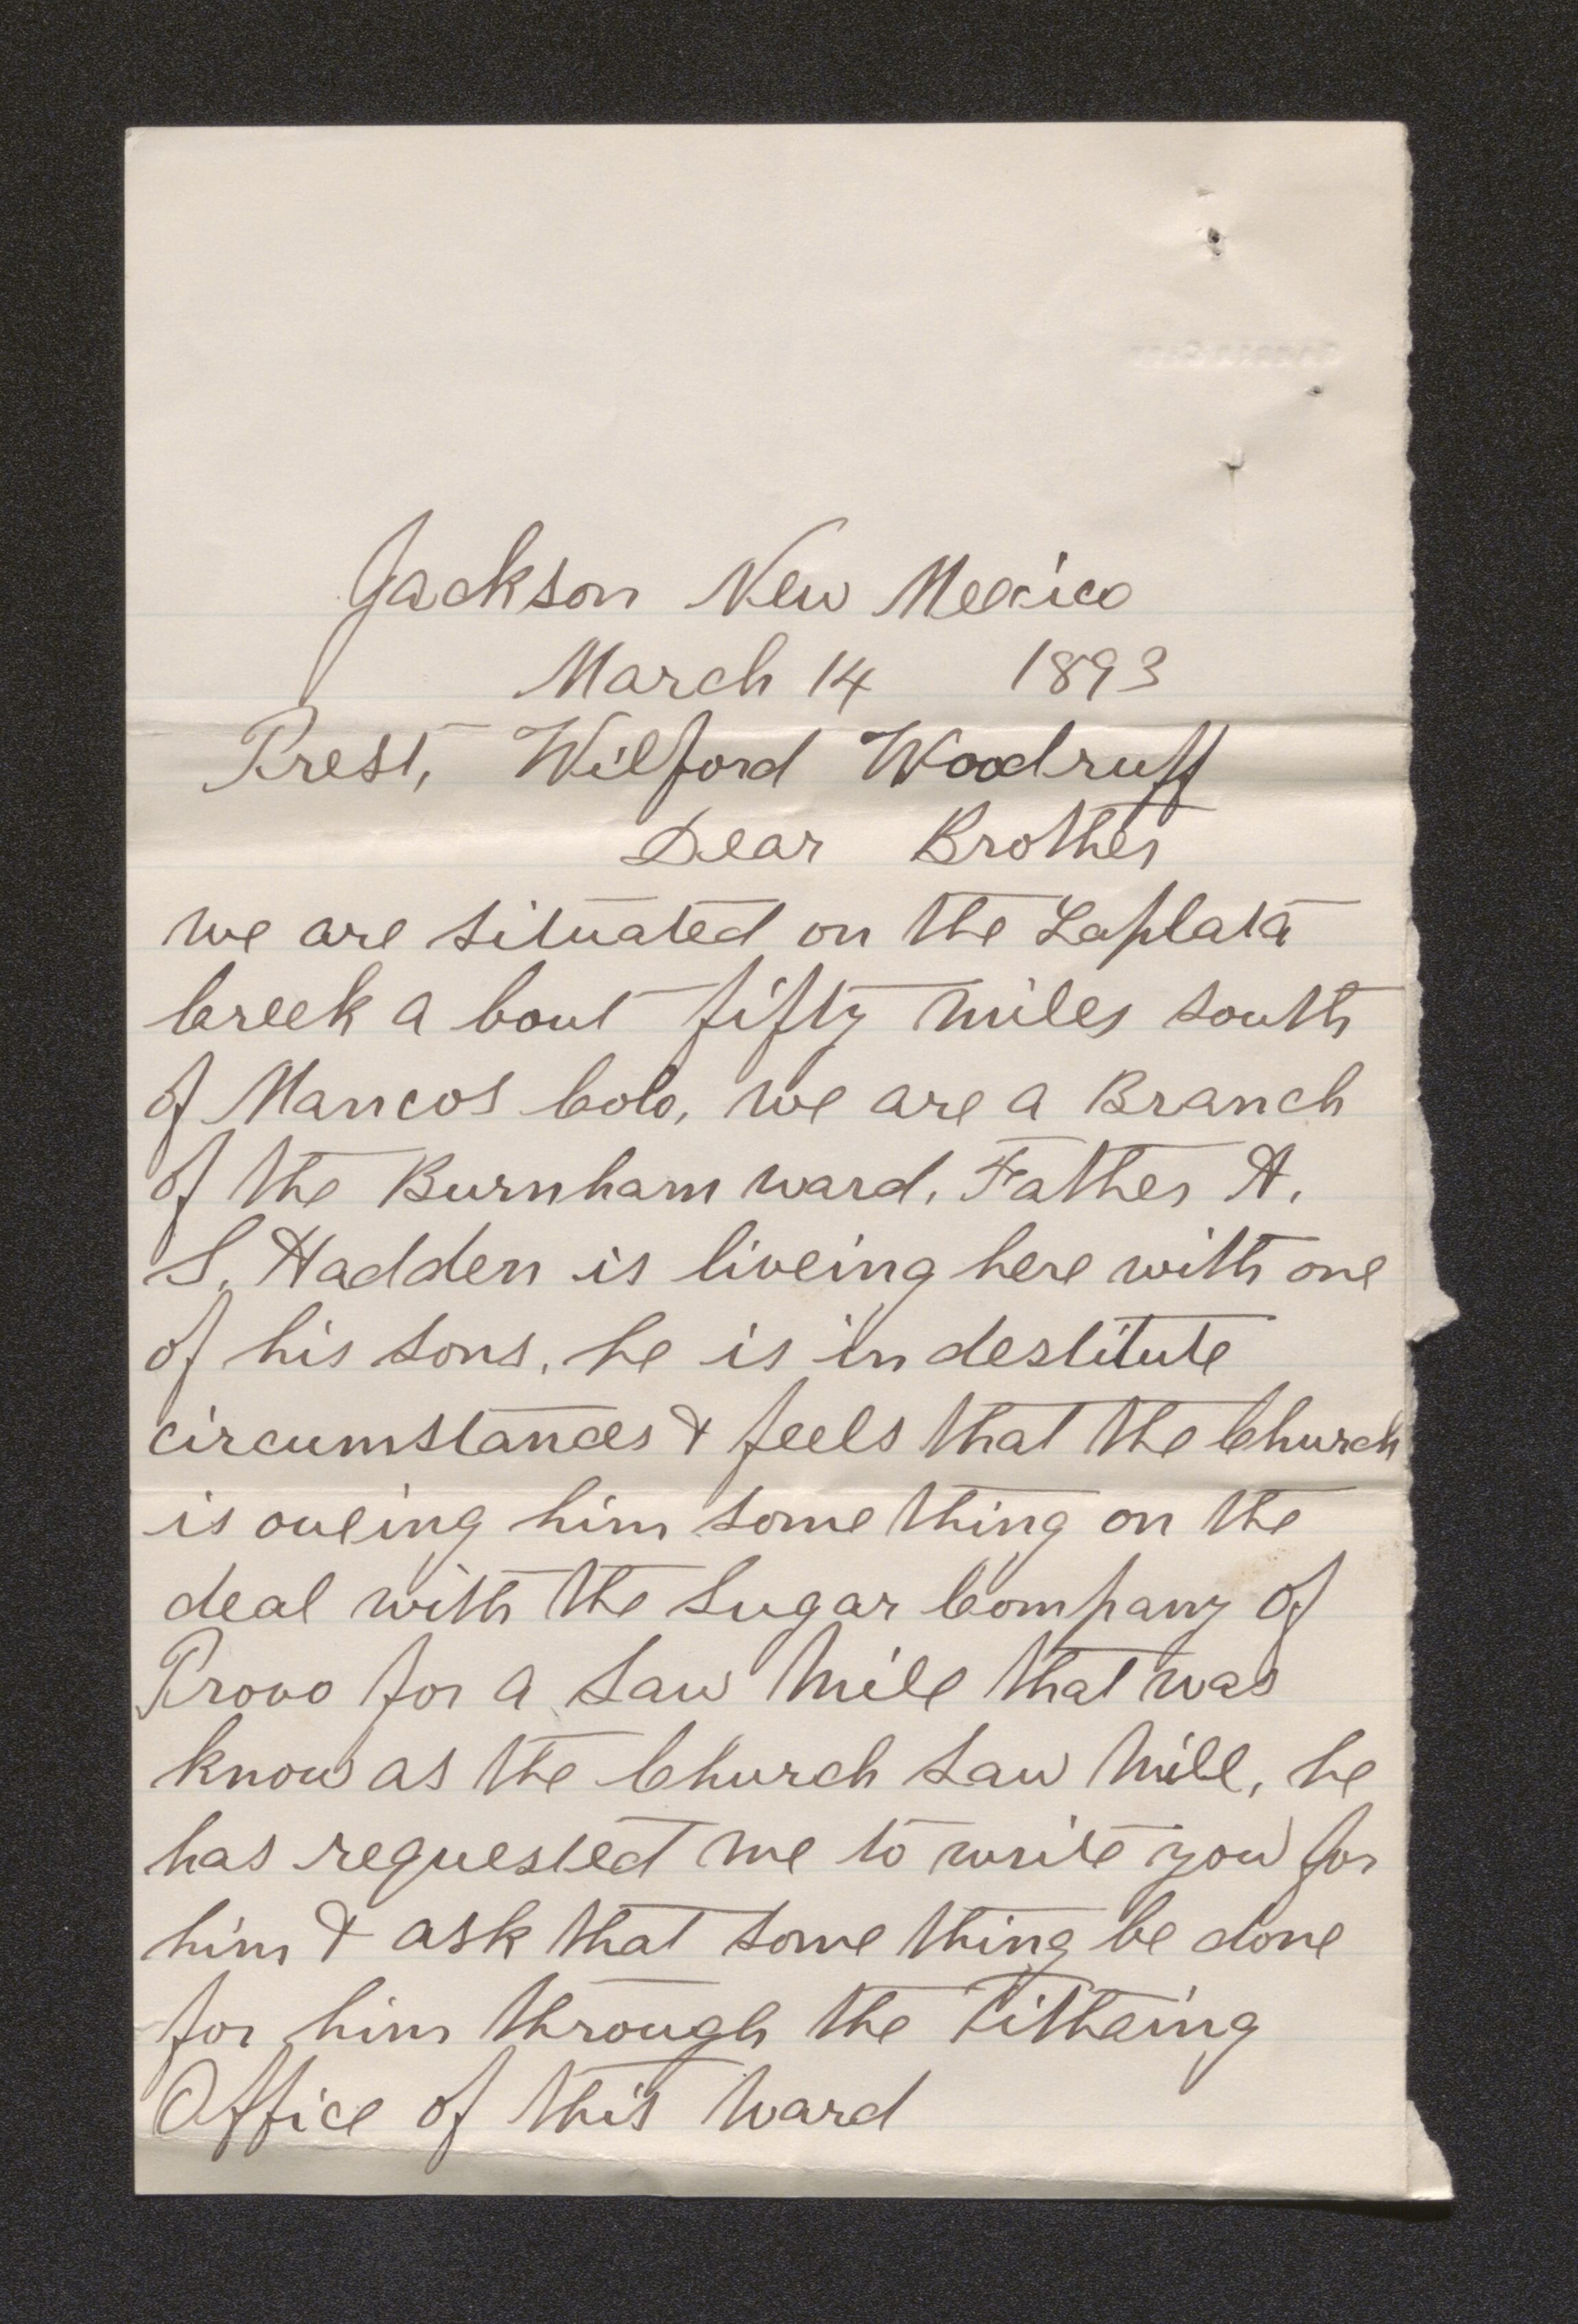 Jackson New Mexico
March 14 1893
Prest, Wilford Woodruff
Dear Brother
we are situated on the Laplata
Creek a bout fifty miles south
of Mancos Colo, we are a Branch
of the Burnham ward. Father A.
S. Hadden is liveing here with one
of his sons. he is in destitute
circumstances & feels that the Church
is oueing him some thing on the
deal with the Sugar Company of
Provo for a Saw Mill that was
know as the Church Saw Mill, he
has requested me to write you for
him & ask that some thing be done
for him through the Titheing
Office of this Ward